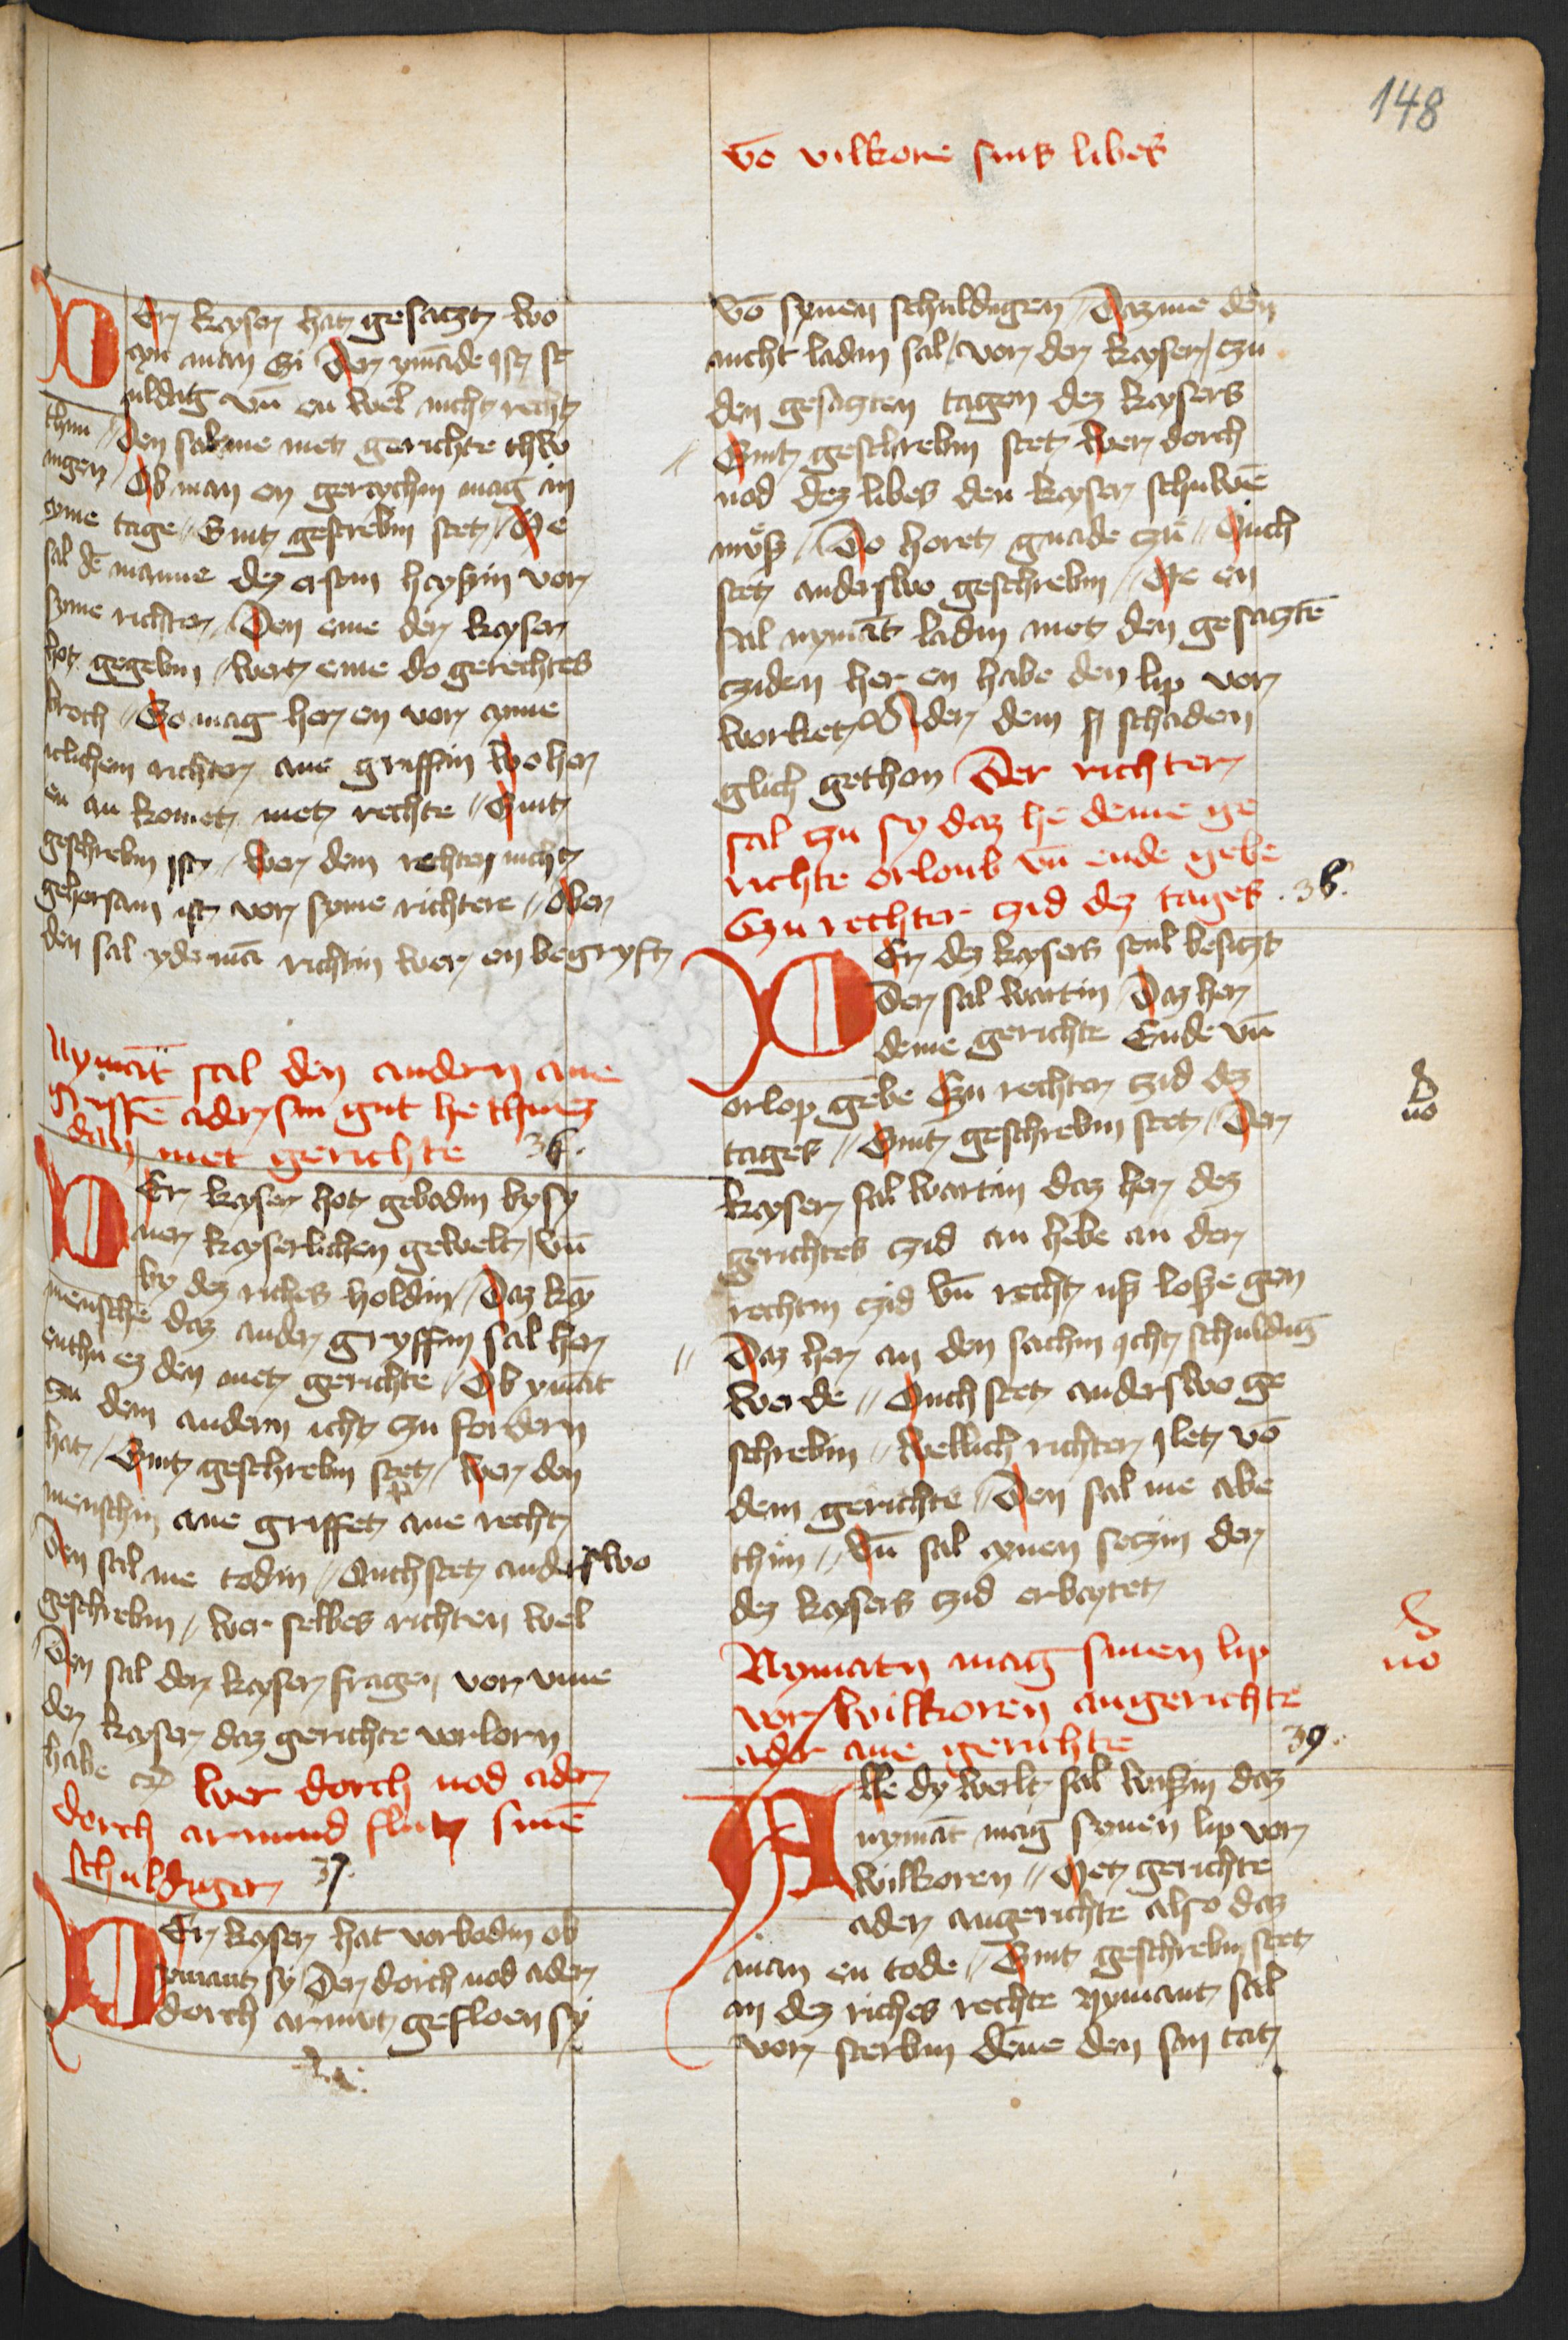 148
vō wilkore sins libes
Der keyser hat gesaczt wo
eyn man si der ymāde ist sc
uldig vñ en wel nicht recht
thun den sal me met gerichte thw
ingen Ob man en gereychin mag in
eyme tage Sint gescrebin stet Me
sal dē manne dez ersten heyschin vor
syme richter Den eme der keyser
hot gegebin wert eme do gerechtes
broch So mag her en vor eyme
iclichem richter ane griffin wo her
en an komet met rechte Sint
geschrebin ist wer dem rechten nicht
gehorsam ist vor syme richtere Obir
den sal yderman richtin wer en begryft
Nymāt sal den andern ane
griffē ader sin gut he thuez
dan met gerichte 36.
Der keyser hot gebodin by sy
ner keyserlichen gewelt vñ
by dez riches holdin Daz keȳ
menschē daz ander gryffin sal her
enthu ez den met gerichte Ob ymāt
czu dem andern icht czu fordern
hat Sint geschrebin stet wer den
menschin ane griffet ane recht
Den sal me todin Ouch stet anderswo
geschrebin wer selbes richten wel
Den sal der keyser fragen vor vme
der keyser daz gerichte verlorn
habe
wer dorch nod ader
dorch armund flut sinē
schuldiger 37.
Der keyser hat vorbodin ob
ymant sy Der dorch nod ader
dorch armut gefloen sy
vō synen schuldigen Daz me den
nicht ladin sal vor den keyser czu
den gesaczten tagen dez keysers
Sint geschrebin stet wer dorch
nod dez libes den keyser schuwē
mösz Do horet gnade czu Ouch
stet anderswo geschrebin Me en
sal nymāt ladin met den gesacztē
cziden her en habe den lip vor
worket Ader dem si schaden
glich gethon Der richter
sal czu sy daz he deme ge
richte orloub vñ ende gebe
Czu rechter czid dez tages .38.
Der dez keysers stul besiczt
der sal wartin Daz her
deme gerichte Ende vñ
orlop gebe Czu rechter czid dez
tages Sint geschrebin stet Der
keyser sal wartin daz her dez
gerichtes czid an hebe an der
rechtin czid vñ recht usz losze gen
Daz her an den sachin icht schuldig
werde Ouch stet anderswo ge
schrebin wellich richter ilet vō
dem gerichte Den sal me abe
thun vñ sal eynen seczin der
dez keysers czid erbeytet
Nymatn mag sinen lip
vor wilkoren angerichte
ader ane gerichte 39.
Alle dy werlt sal wiszin daz
nymāt mag synen lip vor
wilkoren Met gerichte
ader angerichte also daz
man en tode Sint geschrebin stet
in dez riches rechte nymant sal
vor sterbin dēne den sin tat